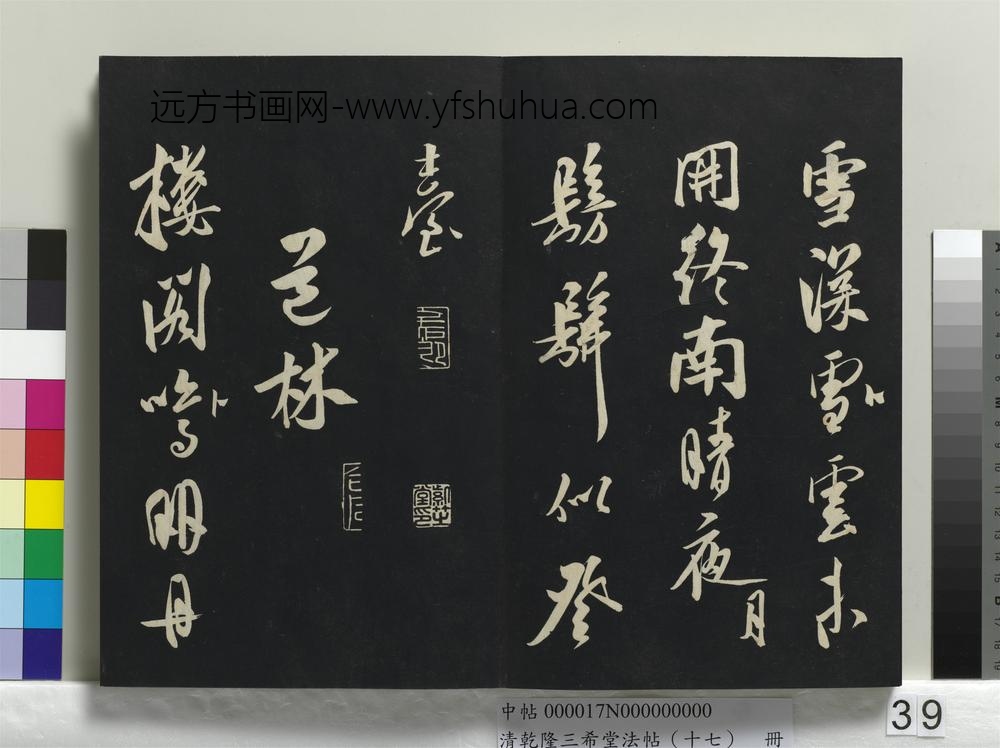 远方书画网-www.yfshuhua.com
雪深雪卜雲未
開終南晴夜月
髣髴似登
臺
道林
樓閣鳴卜明丹
中帖 000017N000000000
清乾隆三希堂法帖（十七） 冊
39